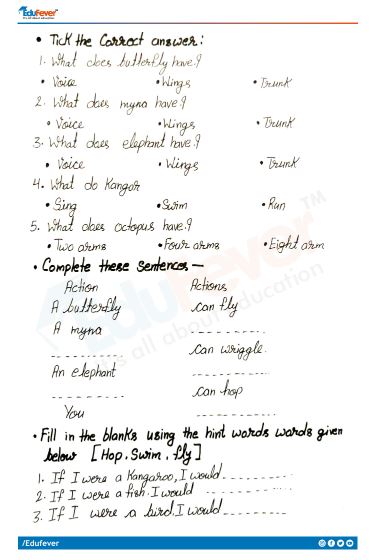 EduFever
It's all about education
• Tick the Correct answer:
1. What does butterfly have?
• Voice •Wings •Trunk
2. What does myna have?
• Voice •Wings • Trunk
3. What does elephant have?
• Voice •Wings • Trunk
4. What do Kangar
• Sing •Swim •Run
5. What does octopus have?
• Two arms •Four arms •Eight arm
• Complete these Sentences —
Action Actions
A butterfly can fly
A myna _ _ _ _ _ _ _ _
_ _ _ _ _ _ _ can wriggle.
An elephant _ _ _ _ _ _ _ _
_ _ _ _ _ _ _ can hop
You _ _ _ _ _ _ _ _
• Fill in the blanks using the hint words words given
below [Hop, Swim, fly]
1. If I were a Kangaroo, I would _ _ _ _ _ _ _
2. If I were a fish. I would _ _ _ _ _ _ _
3. If I were a bird. I would _ _ _ _ _ _ _
EduFever™
It's all about education
/Edufever